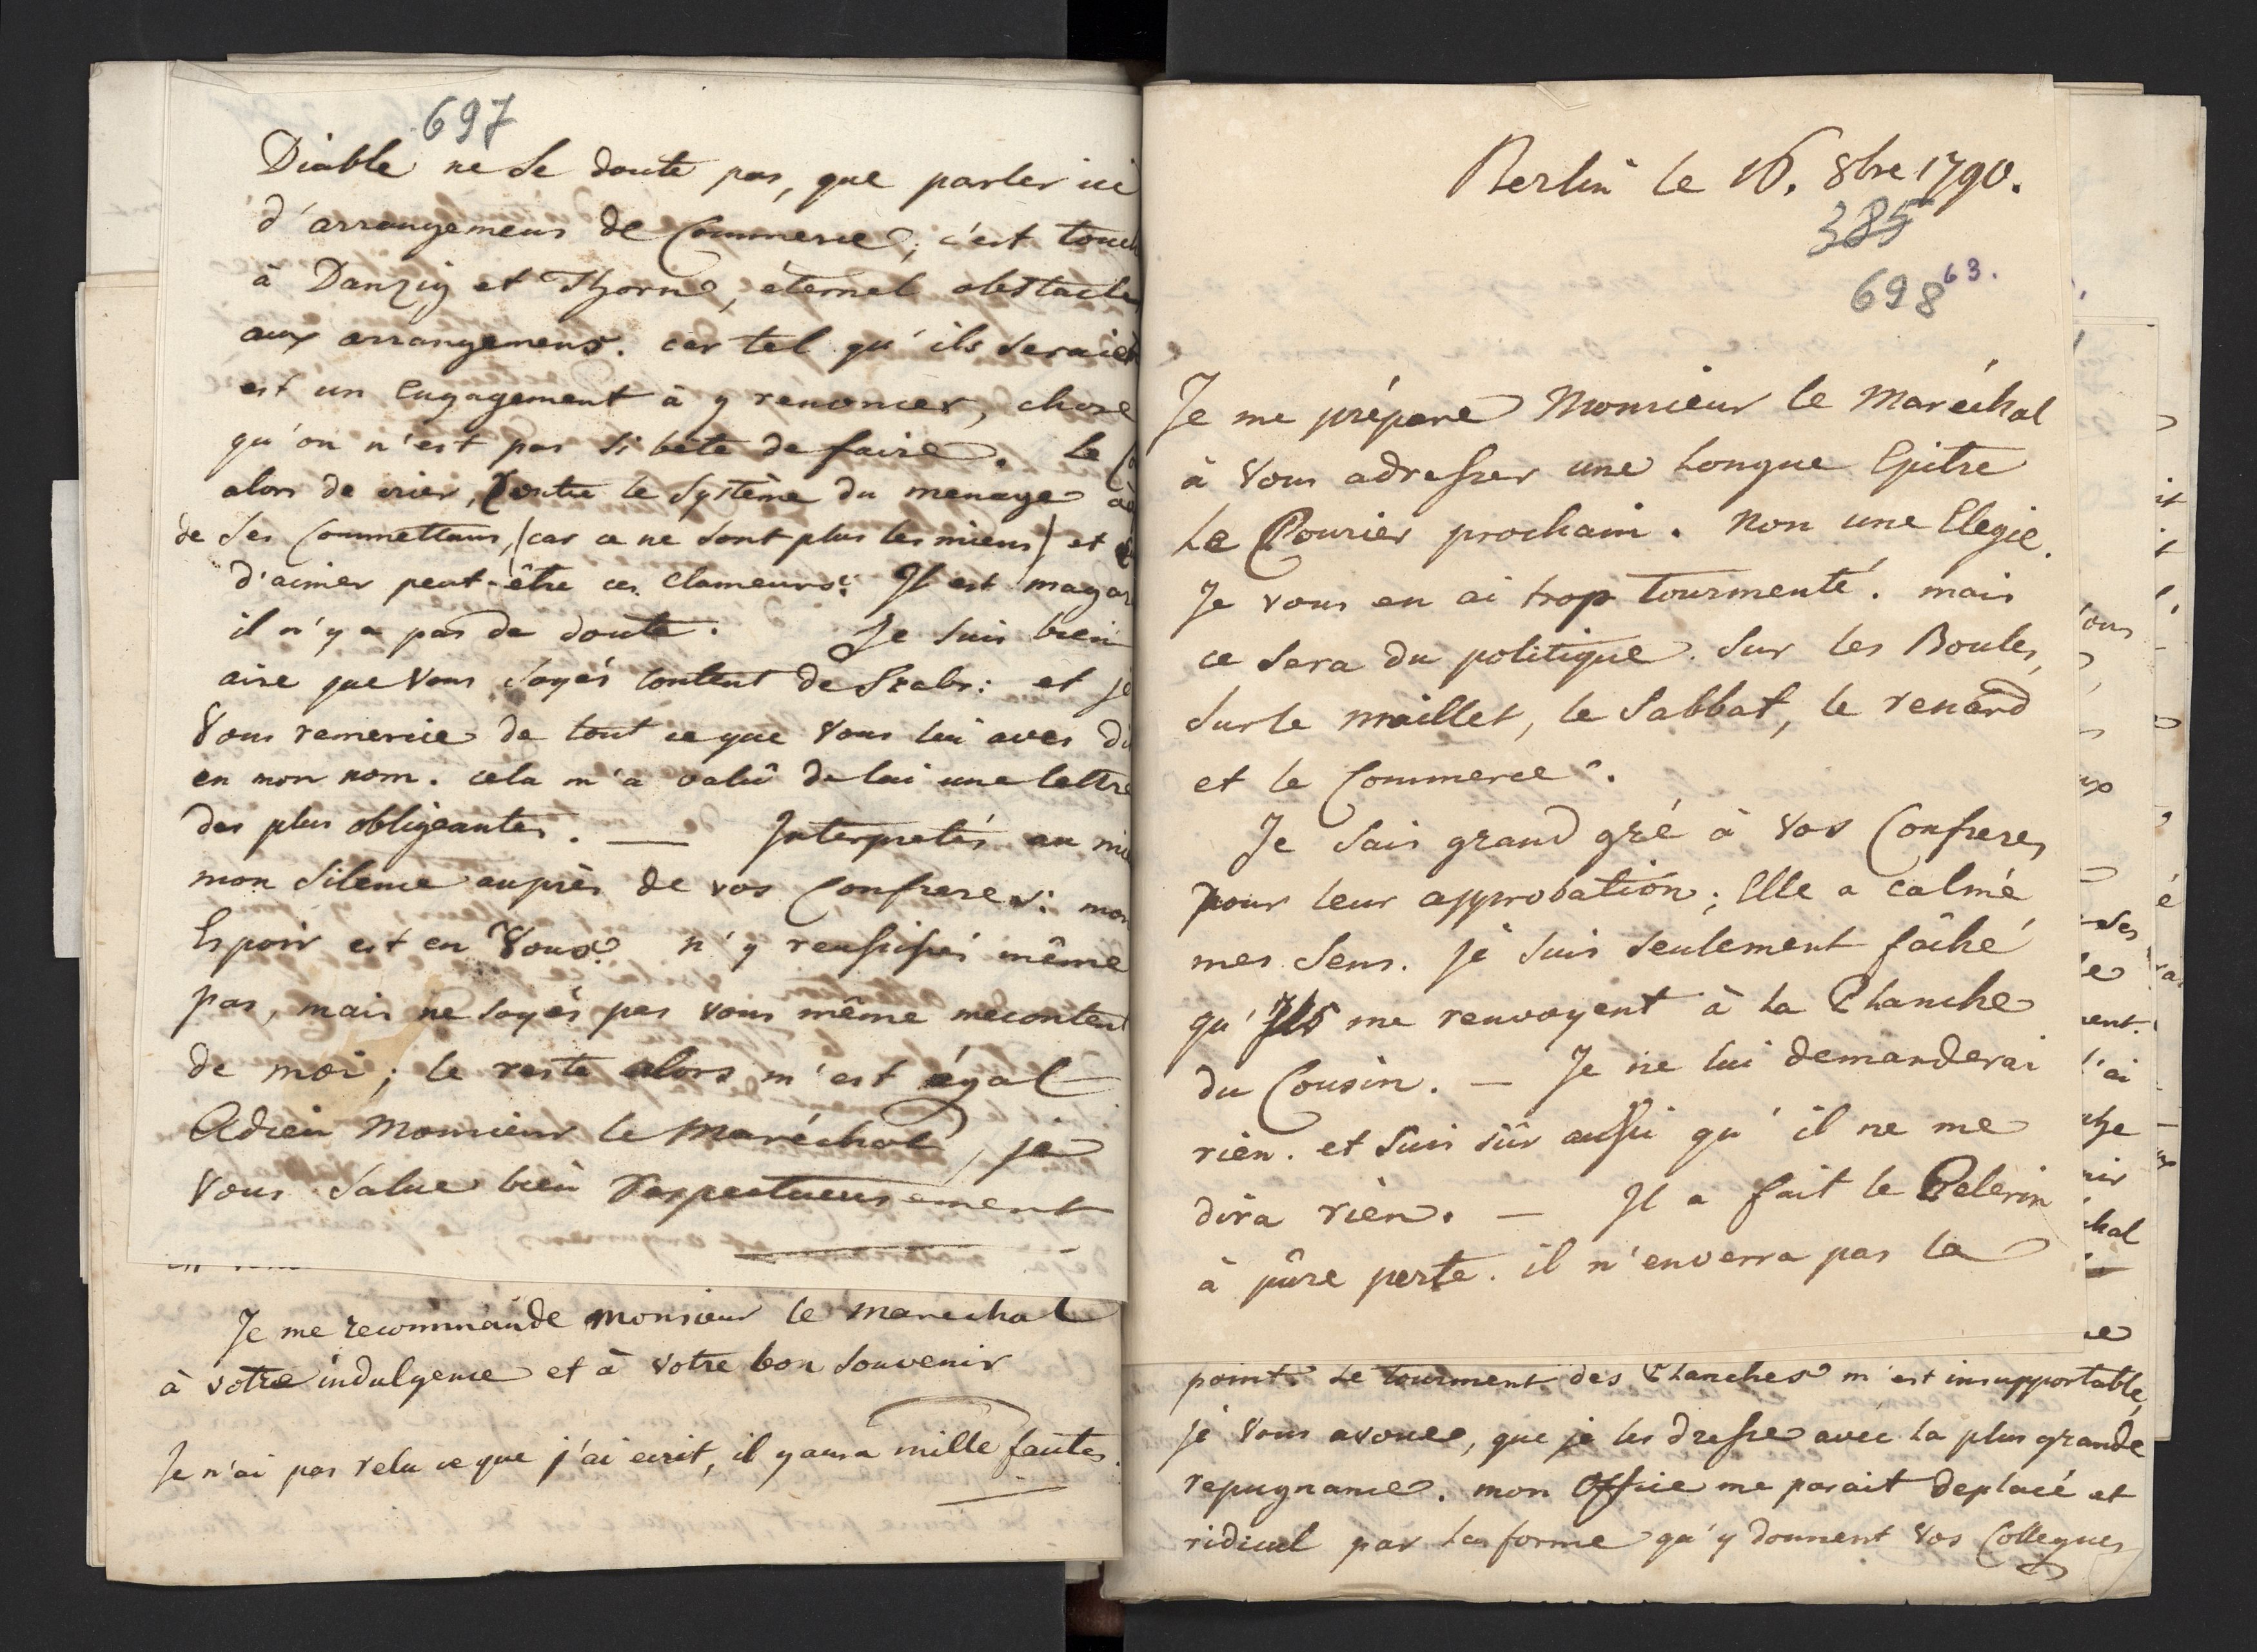 697
Diable ne se doute pas, que parler ici
d'arrangemens de Commerce, c'est touch
à Danzig et Thorn, éternel obstacle
aux arrangemens. car tel qu'ils seraient
est un Engagement à y renoncer, chose
qu'on n'est pas si bête de faire. Le
alors de crier, Contre le Système du menage
de Ses Commettans, (car ce ne sont plus les miens) et
d'aimer peut-être ces clameurs: Il est
il n'y a pas de doute. Je suis bien
aise que Vous soyés content de Szabr: et je
Vous remercie de tout ce que Vous lui aves di
en mon nom. cela m'a valû de lui une lettre
des plus obligeantes. — Interpretés au mi
mon Silence auprès de vos Confreres: mon
Espoir est en Vous. n'y reussissés même
pas, mais ne soyés pas vous même mecontent
de moi; le reste alors m'est égal
Adieu Monsieur le Maréchal, je
Vous Salue bien respectueusement
Je me recommande Monsieur le Marechal
à votre indulgence et à votre bon Souvenir
Je n'ai pas relu ce que j'ai ecrit, il y aura mille fautes.
Berlin le 16. 8bre 1790.
385
698 63.
Je me prépare Monsieur le Maréchal
à Vous adresser une Longue Epitre
Le Courier prochain. Non une Elegie.
Je vous en ai trop tourmenté. mais
ce sera du politique. Sur les Boules,
Sur le maillet, le Sabbat, le renard
et le Commerce.
Je Sais grand gré à vos Confreres
pour leur approbation; Elle a calmé
mes Sens. je suis seulement fâché
qu'Ils me renvoyent à la Planche
du Cousin. — Je ne lui demanderai
rien. et suis sûr aussi qu'il ne me
dira rien. — Il a fait le Pelerin
à pûre perte. il n'enverra pas la
point. Le tourment des Planches m'est insupportable,
je Vous avoue, que je les dresse avec la plus grande
repugnance. mon Office me parait deplacé et
ridicul par la forme qu'y donnent Vos Collegues